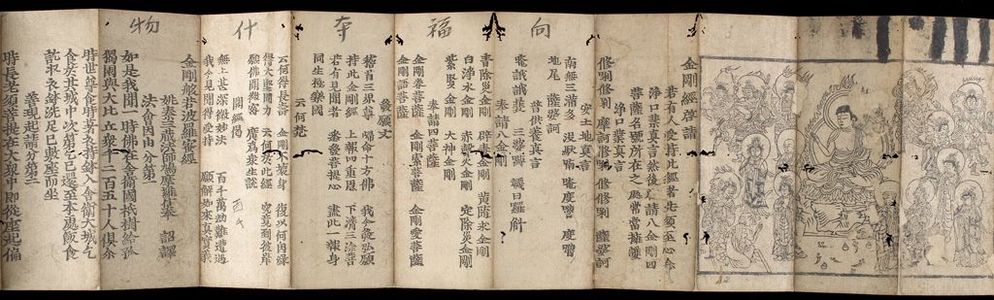 向福夺什物
金剛經啓請
若有人受持此經者先須至心念
淨口業真言然後啓請八金剛四
菩薩名號所在之處常當擁護
淨口業真言
修唎修唎 摩訶修唎 修修唎 薩婆訶
安土地真言
南無三滿多 沒馱喃 唵度嚕 度嚕
地尾 薩婆訶
普供養真言
唵誐誐曩 三婆嚩 韈日羅斛
奉請八金剛
青除災金剛 辟毒金剛 黃隨求金剛
白淨水金剛 赤聲火金剛 定除災金剛
紫賢金剛 大神金剛
奉請四菩薩
金剛眷菩薩 金剛索菩薩 金剛愛菩薩
金剛語菩薩
發願文
稽首三界尊 歸命十方佛 我今發弘願
持此金剛經 上報四重恩 下濟三塗苦
若有見聞者 悉發菩提心 盡此一報身
同生極樂國
云何梵
云何得長壽 金剛不壞身 復以何因緣
得大堅固力 云何於此經 究竟到彼岸
願佛開微密 廣為衆生說
開經偈
無上甚深微妙法 百千萬劫難遭遇
我今見聞得受持 願解如來真實義
金剛般若波羅蜜經
姚秦三藏法師鳩摩羅什奉 詔譯
法會因由分第一
如是我聞一時佛在舍衛國祇樹給孤
獨園與大比丘衆千二百五十人俱尒
時世尊食時著衣持鉢入舍衛大城乞
食於其城中次第乞已還至本處飯食
訖收衣鉢洗足已敷座而坐
善現起請分第二
時長老須菩提在大衆中即從座起偏